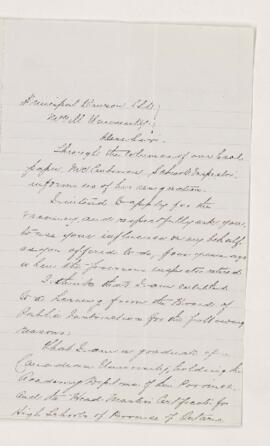 Principal Dawson LLD.
McGill University.
Dear Sir.
Through the columns of our local
paper, Mr. School Inspector,
informs us of his resignation.
I intend to apply for the
vacancy, and respectfully ask you
to use your influence on my behalf
as you offered to do, four years ago
when the previous inspector retired.
I think that I am entitled
to a hearing from the Board of
Public Instruction for the following
reasons:
That I am a graduate of a
Canadian University, holding the
Academy Diploma of this Province
and the Head Master Certificate for
High Schools of Province of Ontario